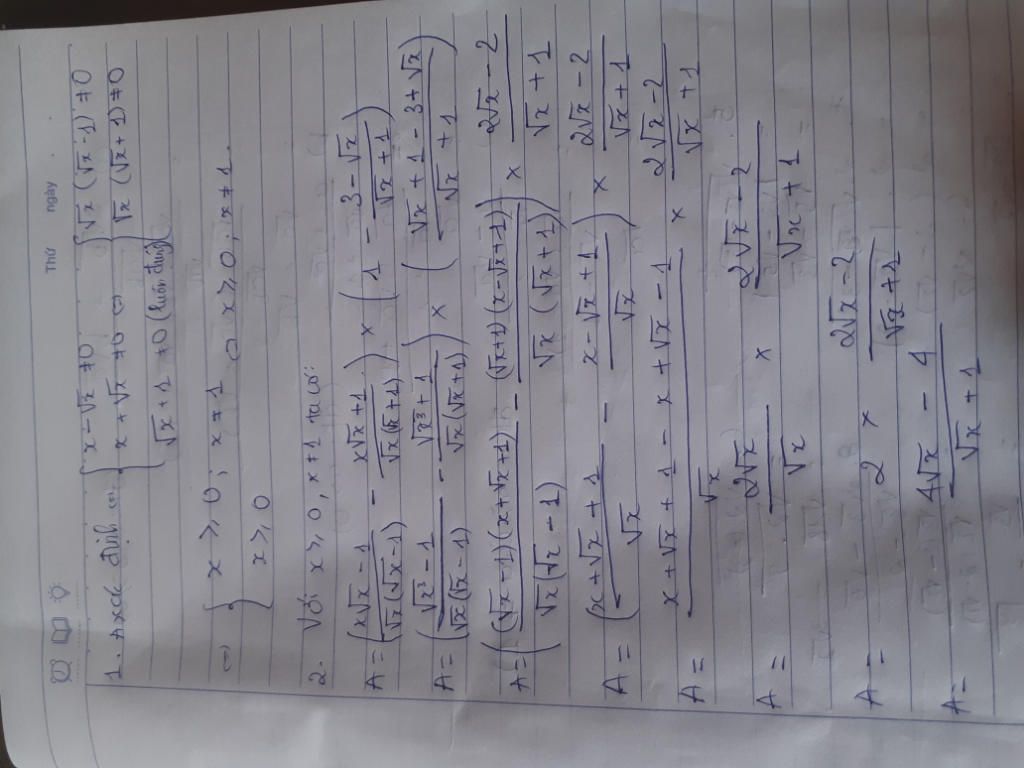 Thứ ngày
1. A xác định ⇔ { x - √x ≠ 0 ; x + √x ≠ 0 ; √x + 1 ≠ 0 (luôn đúng) ⇔ { √x (√x - 1) ≠ 0 ; √x (√x + 1) ≠ 0
⇔ { x ⩾ 0 ; x ≠ 1 ; x ⩾ 0 ⇔ x ⩾ 0, x ≠ 1.
2. Với x ⩾ 0, x ≠ 1 ta có:
A = ( (x√x - 1)/(√x(√x - 1)) - (x√x + 1)/(√x(√x + 1)) ) × ( 1 - (3 - √x)/(√x + 1) )
A = ( (√x³ - 1)/(√x(√x - 1)) - (√x³ + 1)/(√x(√x + 1)) ) × ( (√x + 1 - 3 + √x)/(√x + 1) )
A = ( ((√x - 1)(x + √x + 1))/(√x(√x - 1)) - ((√x + 1)(x - √x + 1))/(√x(√x + 1)) ) × (2√x - 2)/(√x + 1)
A = ( (x + √x + 1)/√x - (x - √x + 1)/√x ) × (2√x - 2)/(√x + 1)
A = (x + √x + 1 - x + √x - 1)/√x × (2√x - 2)/(√x + 1)
A = 2√x/√x × (2√x - 2)/(√x + 1)
A = 2 × (2√x - 2)/(√x + 1)
A = (4√x - 4)/(√x + 1)